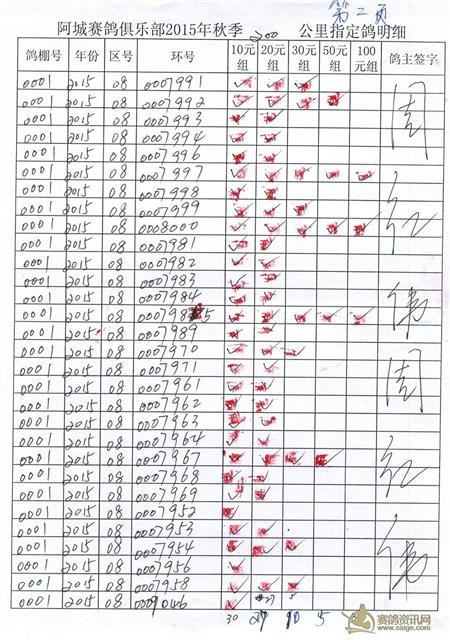 第二页
阿城赛鸽俱乐部2015年秋季 200 公里指定鸽明细
鸽棚号 年份 区号 环号 10元组 20元组 30元组 50元组 100元组 鸽主签字
0001 2015 08 0007991
0001 2015 08 0007992
0001 2015 08 0007993
0001 2015 08 0007994
0001 2015 08 0007996
0001 2015 08 0007997
0001 2015 08 0007998
0001 2015 08 0007999
0001 2015 08 0008000
0001 2015 08 0007981
0001 2015 08 0007982
0001 2015 08 0007983
0001 2015 08 0007984
0001 2015 08 000798 5
0001 2015 08 0007989
0001 2015 08 0007970
0001 2015 08 0007971
0001 2015 08 0007961
0001 2015 08 0007962
0001 2015 08 0007963
0001 2015 08 0007964
0001 2015 08 0007967
0001 2015 08 0007968
0001 2015 08 0007969
0001 2015 08 0007952
0001 2015 08 0007953
0001 2015 08 0007954
0001 2015 08 0007956
0001 2015 08 0007958
0001 2015 08
周
红
伟
周
红
伟
30 27 10 5
赛鸽资讯网
www.saige.com